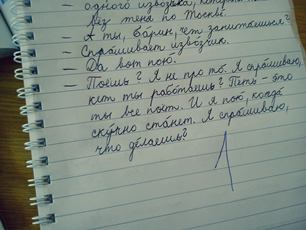 одного извозчика, который
вёз меня по Москве.
– А ты, барин, чем занимаешься?
– Спрашивает извозчик.
– Да вот пою.
– Поёшь? Я не про то. Я спрашиваю,
кем ты работаешь? Петь – это
мы все поем. И я пою, когда
скучно станет. Я спрашиваю,
что делаешь?